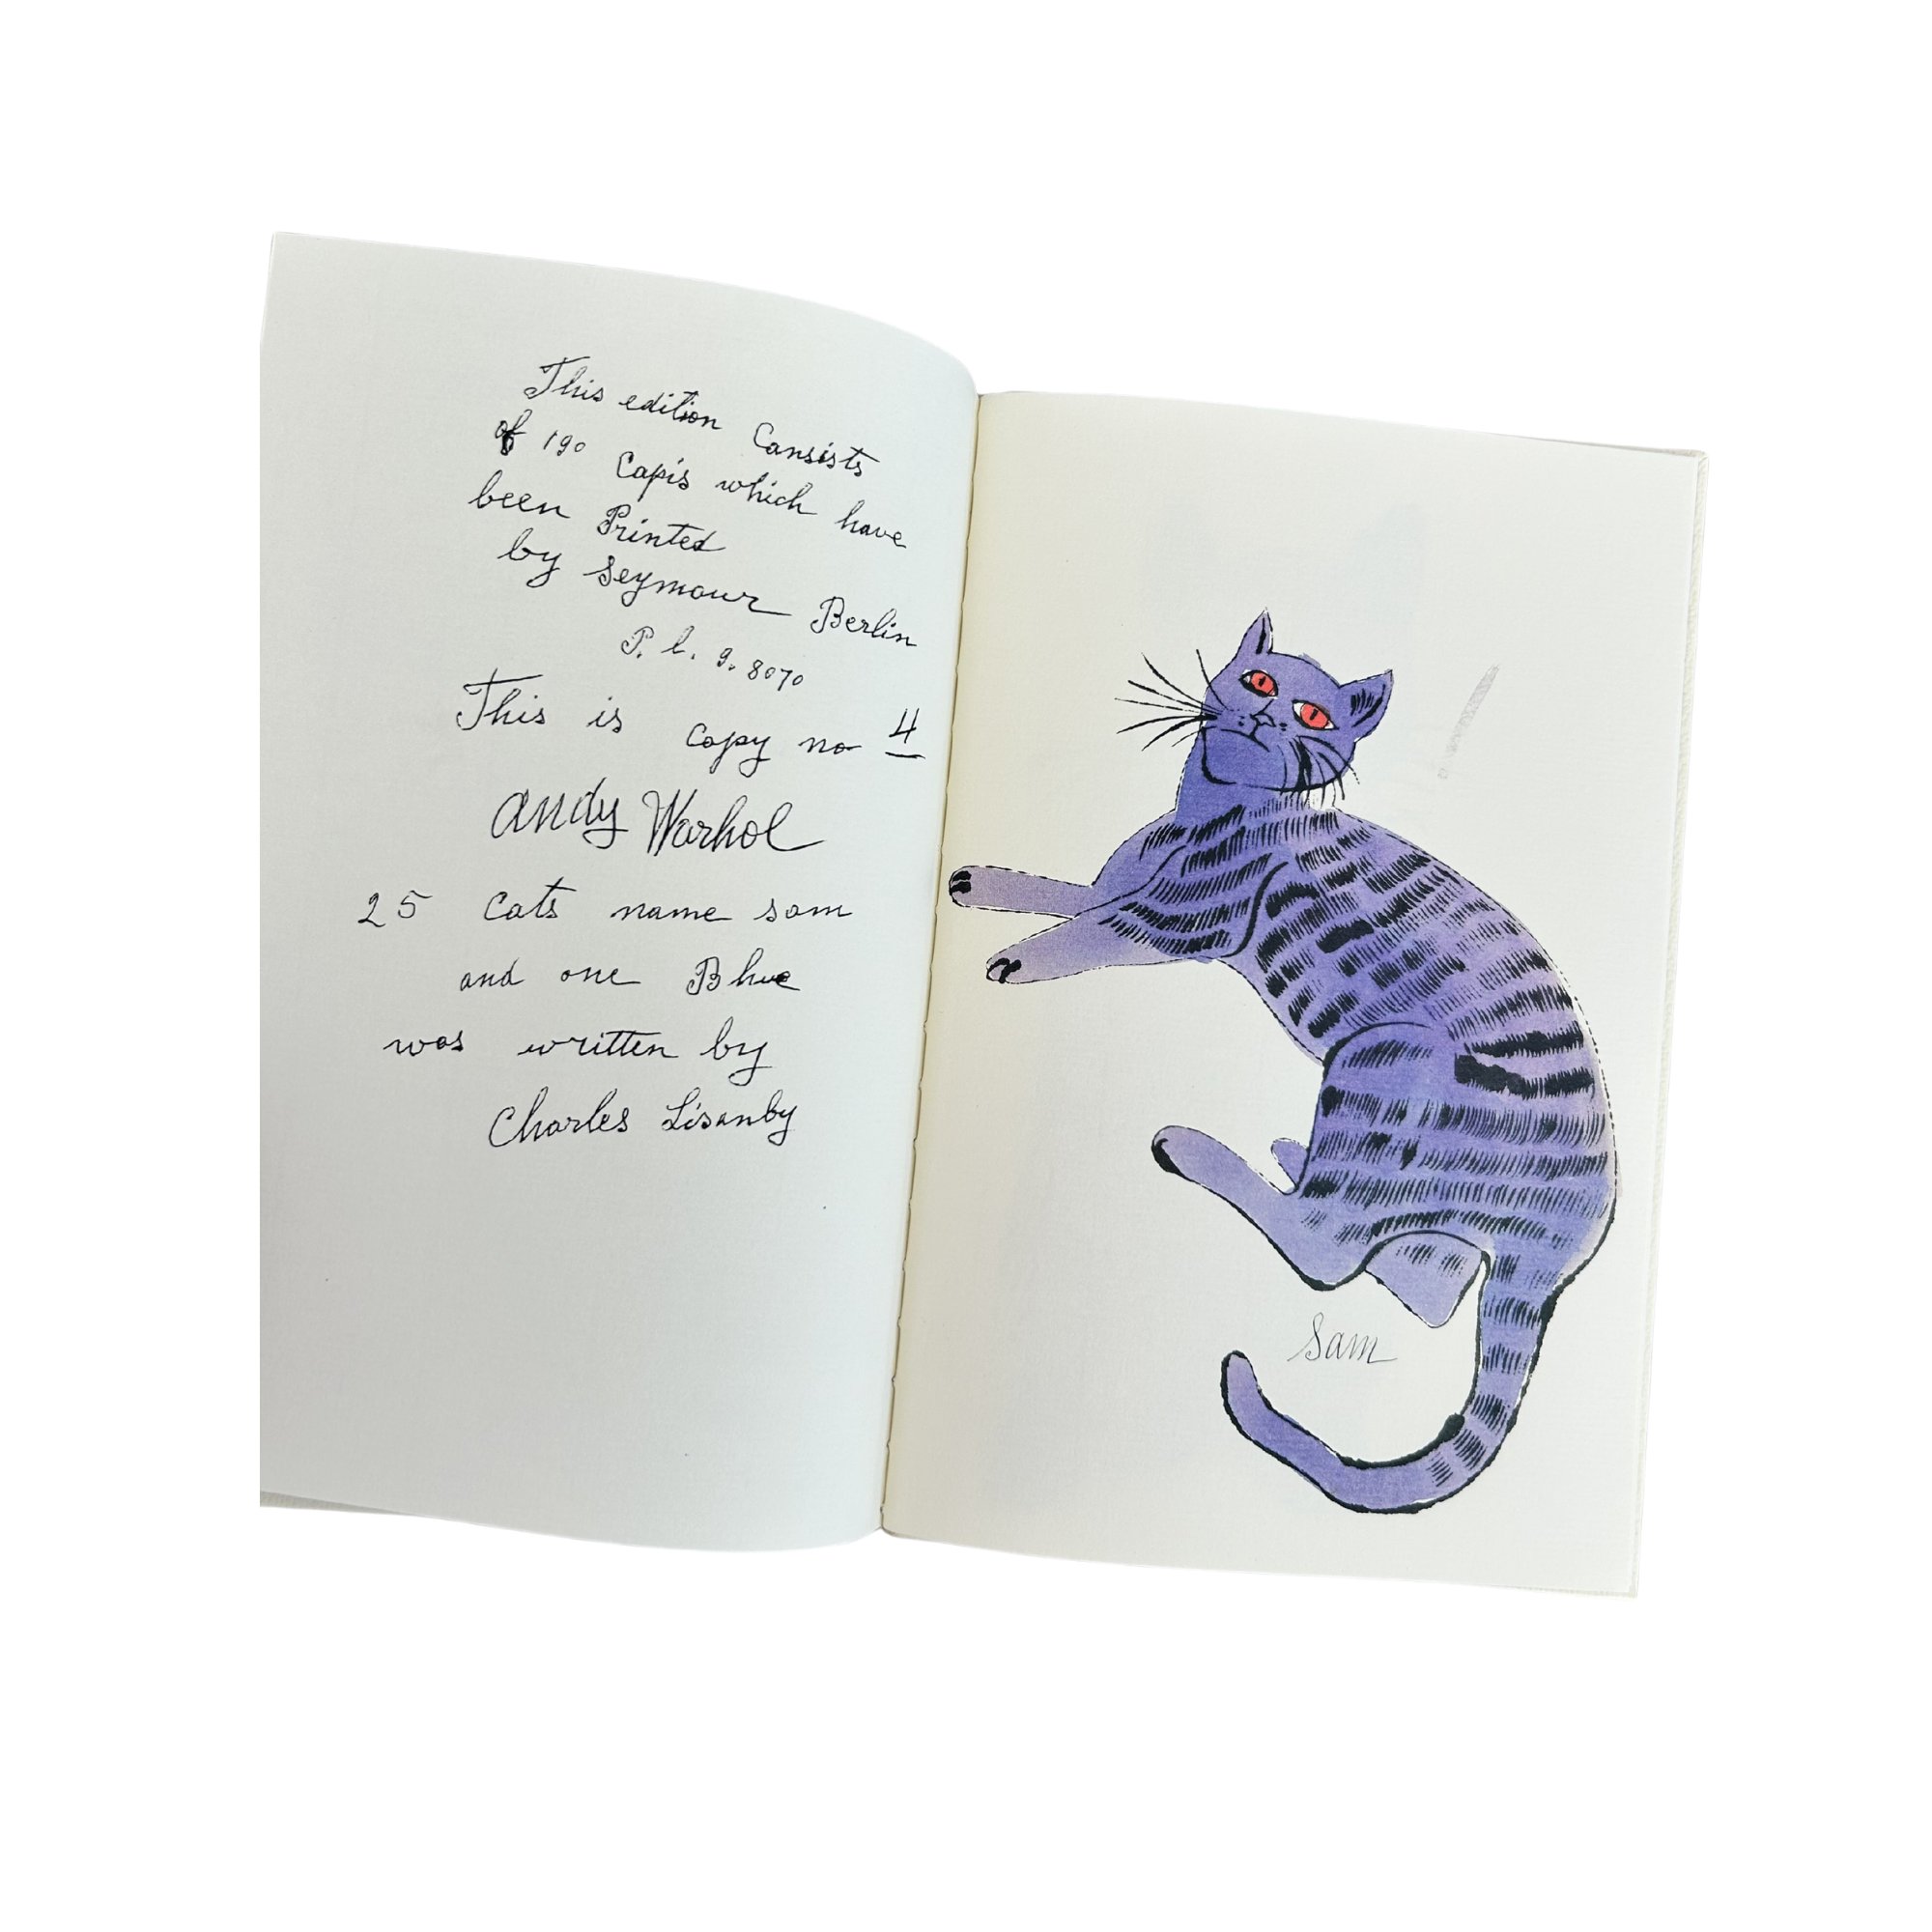 This edition Cansists
of 190 Capis which have
been Printed
by Seymour Berlin
P. l. 9. 8070
This is copy no 4
Andy Warhol
25 Cats name sam
and one Blue
was written by
Charles Lisanby
Sam